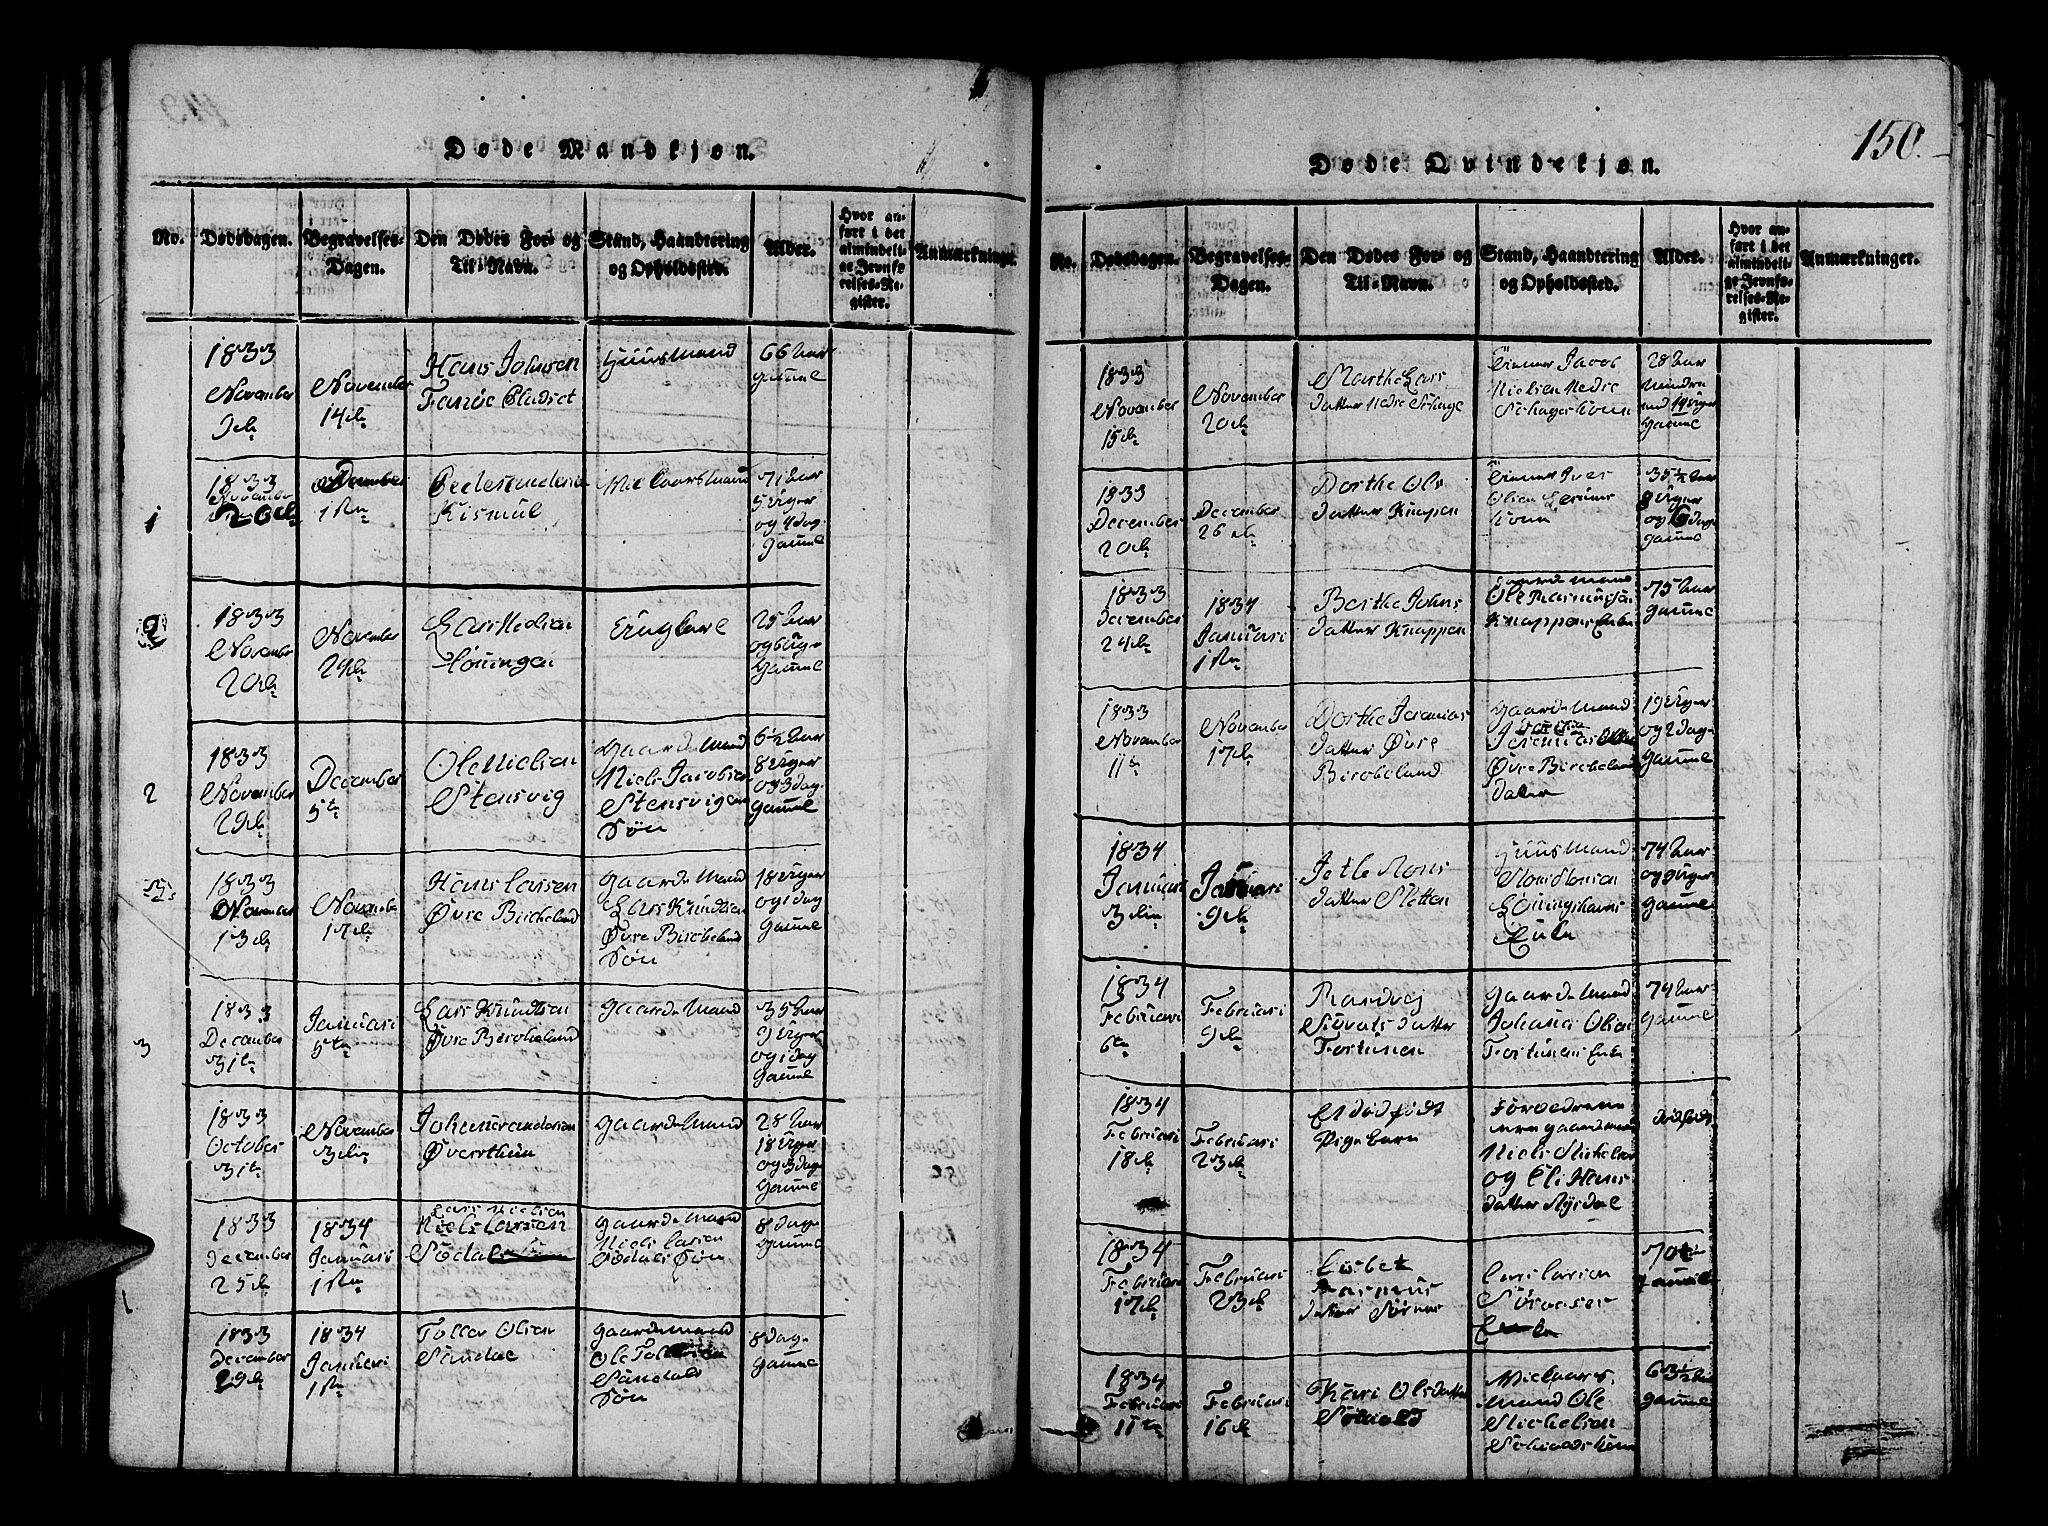 Døde Mandkjøn.
No.
Dødsdagen.
Begravelses-
Dagen.
Den Dødes For- og
Til-Navn.
Stand, Haandtering
og Opholdssted.
Alder.
Hvor an-
ført i det
almindeli-
ge Jevnfø-
relses-Re-
gister.
Anmærkninger.
1833
November
9de
November
14de
Hans Johnsen
Huusmand
66 Aar
gammel
1
1833
November
26de
December
1ste
71 Aar
5 Uger
og 4 dag
gammel
1833
November
20de
November
24de
Lars
Ungkarl
25 Aar
og 6 Uge
gammel
2
1833
November
29de
December
5te
Ole Nielsen
Stensvig
Gaardemand
Niels Jacobsen
Stensvigen
Søn
6½ Aar
8 Uger
og 3 dag
gammel
1833
November
13de
November
17de
Hans Larsen
Øvre Birkeland
Gaardemand
Lars Knudsen
Øvre Birkeland
Søn
18 Uger
og 1 dag
gammel
3
1833
December
31te
Januari
5te
Lars Knudsen
Øvre Birkeland
Gaardemand
35 Aar
9 Uger
og 1 dag
gammel
1833
October
31te
November
3die
Gaardemand
28 Aar
18 Uger
og 3 dag
gammel
1833
December
25de
1834
Januari
1ste
Lars Nielsen
Niels Larsen
Gaardemand
Niels Larsen
Søn
8 dage
gammel
1833
December
29de
1834
Januari
1ste
Tolles Olsen
Sandal
Gaardemand
Ole
Sandals
Søn
8 dage
gammel
150.
Døde Qvindekjøn.
No.
Dødsdagen.
Begravelses-
Dagen.
Den Dødes For- og
Til-Navn.
Stand, Haandtering
og Opholdssted.
Alder.
Hvor an-
ført i det
almindeli-
ge Jevnfø-
relses-Re-
gister.
Anmærkninger.
1833
November
15de
November
20de
Marthe Lars
datter Nedre
Jacob
Nielsen Nedre
28 Aar
mindre
end 14 Uger
gammel
1833
December
20de
December
26de
Dorthe Ols
datter Knapen
Iver
Olsen
35½ Aar
8 Uger
og 6 dage
gammel
1833
December
24de
1834
Januari
1ste
Berthe Johns
datter Knappen
Gaardemand
Ole Rasmusen
Knappens Enke
75 Aar
gammel
1833
November
11te
November
17de
Dorthe Jeremias
datter Øvre
Birkeland
Gaardemand
Jeremias
Øvre Birkeland
dater
19 Uger
og 2 dage
gammel
1834
Januari
3die
Januari
9de
Mons
datter Sletten
Huusmand
Mons Monsen
Enke
74 Aar
og 9 Uger
gammel
1834
Februari
6te
Februari
9de
Randvej
Sivertsdatter
Fortunen
Gaardemand
Johanes Olsen
Fortunens Enke
74 Aar
gammel
1834
Februari
18de
Februari
23de
Et dødfødt
Pigebarn
Forældrene
ere gaardmand
Niels Michelsen
og Eli Hans
datter
dødfødt
1834
Februari
17de
Februari
23de
Lisbet
Rasmus
datter
Lars Larsen
Enke
70
gammel
1834
Februari
11te
Februari
16de
Kari Olsdatter
mand Ole
Michelsen
63½ Aar
gammel